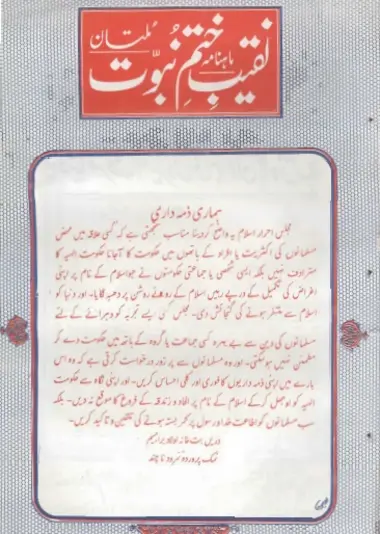 ماہنامہ نقیبِ ختمِ نبوّت ملتان
ہماری ذمہ داری
مجلس احرار اسلام یہ واضح کردینا مناسب سمجھتی ہے کہ کسی علاقہ میں محض
مسلمانوں کی اکثریت یا افراد کے ہاتھوں میں حکومت کا آجانا حکومت الٰہیہ کا
مترادف نہیں بلکہ ایسی شخصی یا جماعتی حکومتوں نے جو اسلام کے نام پر اپنی
اغراض کی تکمیل کے درپے رہیں اسلام کے روئے روشن پر دھبہ لگایا۔ اور دنیا کو
اسلام سے متنفر ہونے کی گنجائش دی۔ مجلس کسی ایسے تجربہ کو دہرانے کے لئے
مسلمانوں کی دین سے بے بہرہ کسی جماعت یا گروہ کے ہاتھ میں حکومت دے کر
مطمئن نہیں ہوسکتی۔ اور وہ مسلمانوں سے پر زور درخواست کرتی ہے کہ وہ اس
بارے میں اپنی ذمہ داریوں کا فوری اور کلی احساس کریں۔ اور اپنی نگاہ سے حکومت
الٰہیہ کو اوجھل کرکے اسلام کے نام پر الحاد و زندقہ کے فروغ کا موقع نہ دیں۔ بلکہ
سب مسلمانوں کو اطاعت خدا و رسول پر کمر بستہ ہونے کی تلقین و تاکید کریں۔
دریں بت خانہ اولاد براہیم
نمک پروردۂ نمرود تا چند